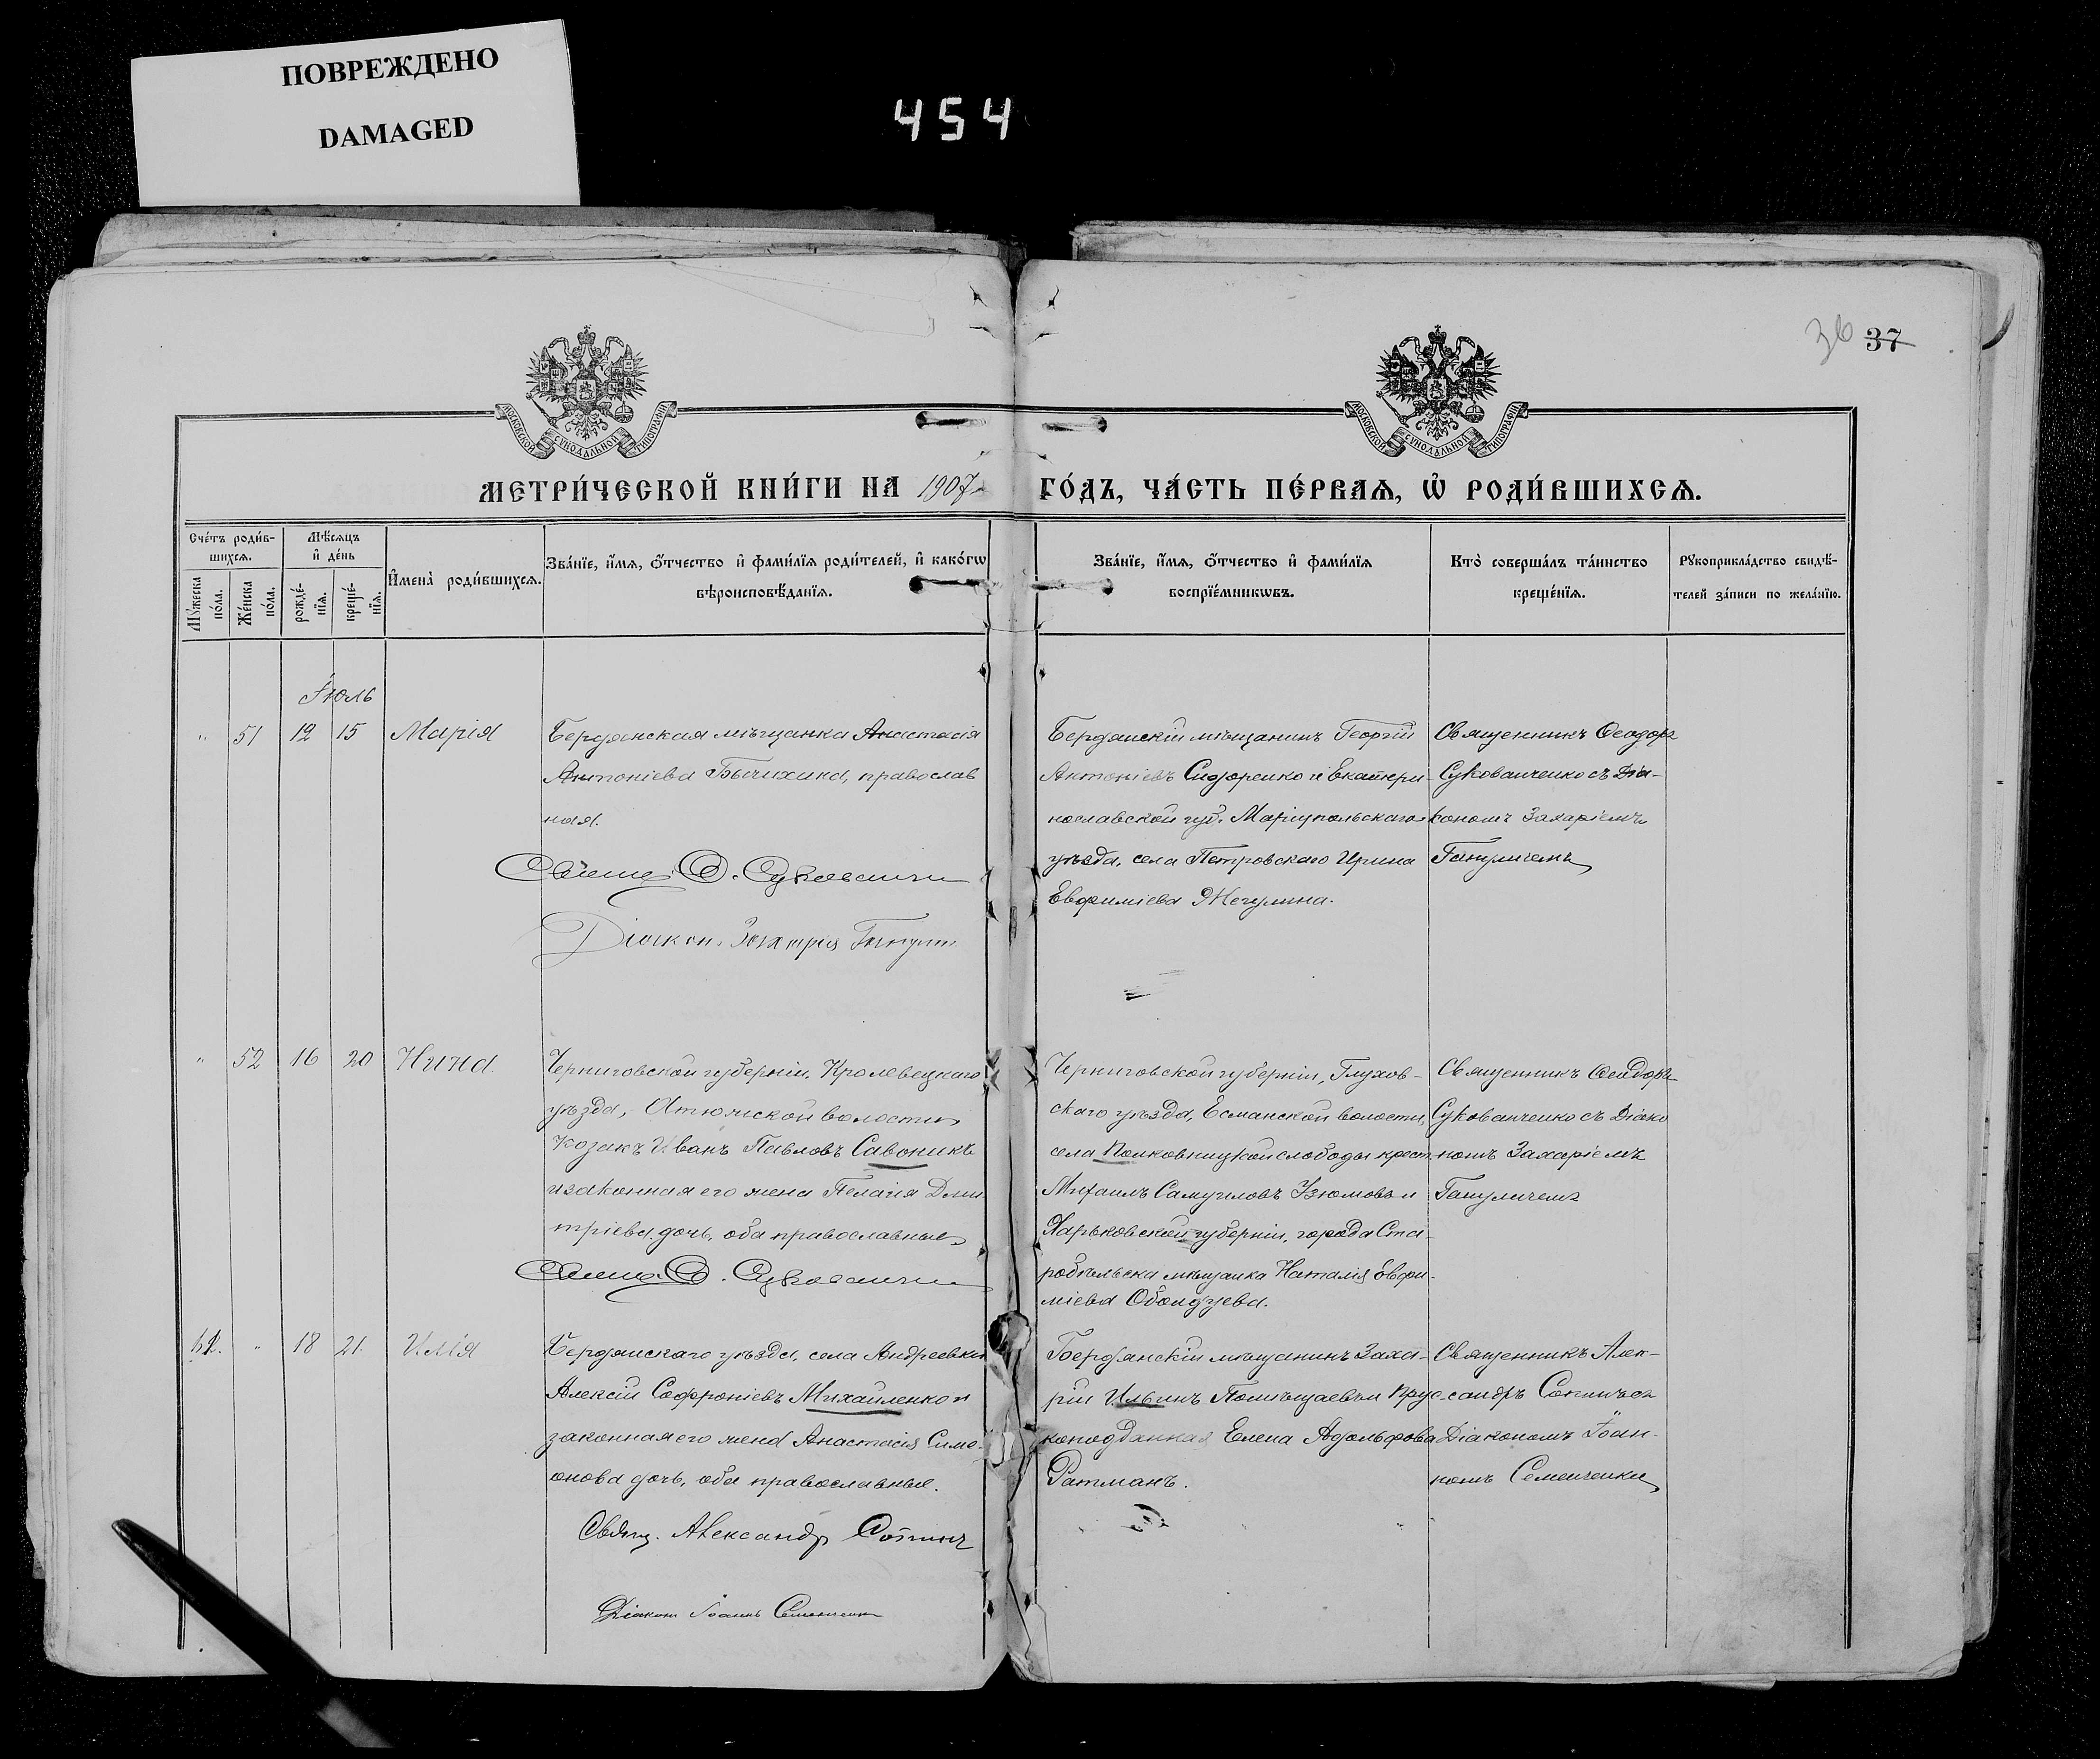 ПОВРЕЖДЕНО
DAMAGED
454
36 37
МОСКОВСКОЙ СѴНОДАЛЬНОЙ ТИПОГРАФІИ
МОСКОВСКОЙ СѴНОДАЛЬНОЙ ТИПОГРАФІИ
МЕТРИ́ЧЕСКОЙ КНИ́ГИ НА 1907
ГО́ДЪ, ЧА́СТЬ ПЕ́РВАѦ, Ѡ҆ РОДИ́ВШИХСѦ.
Сче́тъ роди́в-
шихсѧ.
Мꙋ́жеска по́ла.
Же́нска по́ла.
Мѣ́сѧцъ
и҆ де́нь
рожде́-
нїѧ.
креще́-
нїѧ.
И҆мена̀ роди́вшихсѧ.
Зва́нїе, и҆́мѧ, ѻ҆́тчество и҆ фами́лїѧ роди́телей, и҆ како́гѡ
вѣроисповѣ́данїѧ.
Зва́нїе, и҆́мѧ, ѻ҆́тчество и҆ фами́лїѧ
воспрїе́мникѡвъ.
Кто̀ соверша́лъ та́инство
креще́нїѧ.
Рꙋкоприкла́дство свидѣ́-
телей за́писи по жела́нїю.
Іюль
" 51 12 15 Марія
Бердянская мѣщанка Анастасія
Антоніева Бычихина, православ
ная.
Діакон. Захарія Гапулич
Бердянскій мѣщанинъ Георгій
Антоніевъ Сидоренко и Екатери-
нославской губ. Маріупольскаго
уѣзда, села Петровскаго Ирина
Евфиміева Жегулина.
Священникъ Ѳеодоръ
Сукованченко съ Діа-
кономъ Захаріемъ
Гапуличемъ
" 52 16 20 Нина
Черниговской губерніи, Кролевецкаго
уѣзда, Атюшской волости
козакъ Иванъ Павловъ Савоникъ
и законная его жена Пелагія Дми
тріева дочь, оба православные
Черниговской губерніи, Глухов-
скаго уѣзда, Есманской волости,
села Полковницкой слободы крест.
Михаилъ Самуиловъ Изюмовъ и
Харьковской губерніи, города Ста-
робѣльска мѣщанка Наталія Евфи-
міева Оболдуева.
Священникъ Ѳеодоръ
Сукованченко съ Діако
номъ Захаріемъ
Гапуличемъ
" 18 21. Илія
Бердянскаго уѣзда, села Андреевки
Алексій Софроніевъ Михайленко и
законная его жена Анастасія Симе-
онова дочь, оба православные.
Свящ. Александръ Сопинъ
Діаконъ Іоаннъ Семенченко
Бердянскій мѣщанинъ Заха-
рій Ильинъ Помѣщаевъ и Прус-
коподданная Елена Адольфова
Ратманъ.
Священникъ Алек-
сандръ Сопинъ съ
Діакономъ Іоан-
номъ Семенченки